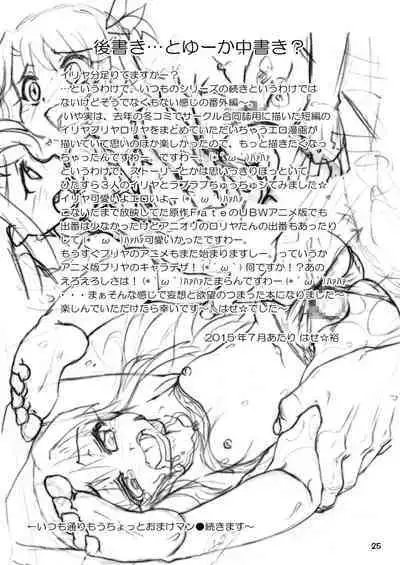 後書き…とゆーか中書き？
イリヤ分足りてますかー？
…というわけで、いつものシリーズの続きというわけでは
ないけどそうでなくもない感じの番外編～
いや実は、去年の冬コミでサークル合同誌用に描いた短編の
イリヤプリヤロリヤをまとめていただいちゃうエロ漫画が
描いていて思いのほか楽しかったので、もっと描きたくなっ
ちゃったんですわー、ですわー、(*´ω`)ﾊｧﾊｧ
というわけで、ストーリーとかは思いっきりほっといて
ひたすら３人のイリヤとラブラブちゅっちゅシてみました☆
イリヤ可愛いよエロいよー。(*´ω`)ﾊｧﾊｧ
こないだまで放映してた原作ＦａｔｅのＵＢＷアニメ版でも
出番は少なかったけどアニオリのロリヤたんの出番もあったり
して(*´ω`)ﾊｧﾊｧ可愛いかったですわー。
もうすぐプリヤのアニメもまた始まりますしー。っていうか
アニメ版プリヤのキャラデザ！(*´ω`)何ですか！？あの
えろえろしさは！(*´ω`)ﾊｧﾊｧたまらんですわー(*´ω`)ﾊｧﾊｧ
・・・まぁそんな感じで妄想と欲望のつまった本になりました～
楽しんでいただけたら幸いです～。はせ☆でした～
2015年７月あたり はせ☆裕
←いつも通りもうちょっとおまけマン●続きます～
25